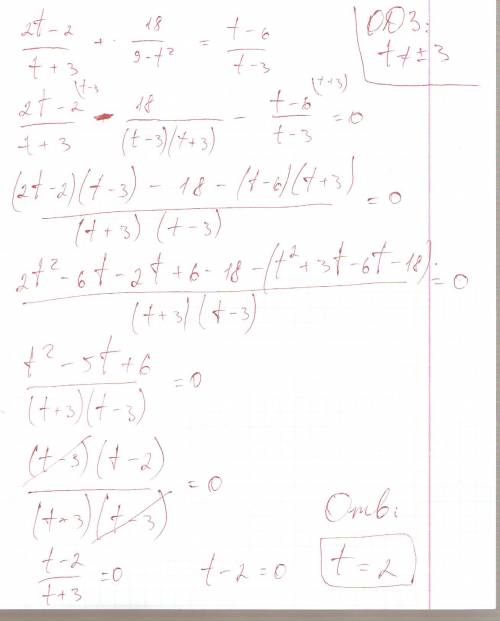 (2t-2)/(t+3) + 18/(9-t²) = (t-6)/(t-3)
ОДЗ:
t≠±3
(2t-2)/(t+3) (t-3 - 18/((t-3)(t+3)) - (t-6)/(t-3) (t+3) = 0
((2t-2)(t-3) - 18 - (t-6)(t+3))/((t+3)(t-3)) = 0
(2t²-6t-2t+6-18-(t²+3t-6t-18))/((t+3)(t-3)) = 0
(t²-5t+6)/((t+3)(t-3)) = 0
((t-3)(t-2))/((t+3)(t-3)) = 0
(t-2)/(t+3) = 0
t-2=0
Отв:
t=2